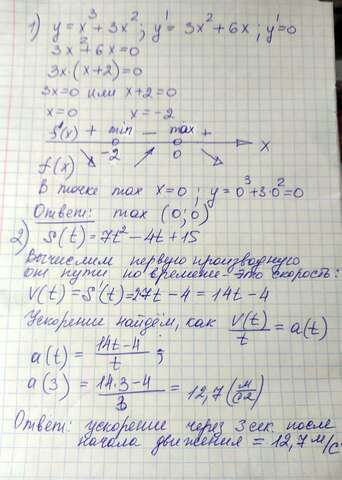 1) y = x³ + 3x²; y' = 3x² + 6x; y' = 0
3x² + 6x = 0
3x·(x+2) = 0
3x = 0 или x+2 = 0
x = 0 x = -2
f'(x) + min — max +
-2 0 x
f(x)
В точке max x=0; y = 0³ + 3·0² = 0
Ответ: max (0; 0)
2) S(t) = 7t² - 4t + 15
Вычислим первую производную
от пути по времени - это скорость:
V(t) = S'(t) = 27t - 4 = 14t - 4
Ускорение найдём, как V(t)/t = a(t)
a(t) = (14t - 4)/t;
a(3) = (14·3 - 4)/3 = 12,7 (м/с2)
Ответ: ускорение через 3 сек. после
начала движения = 12,7 м/с